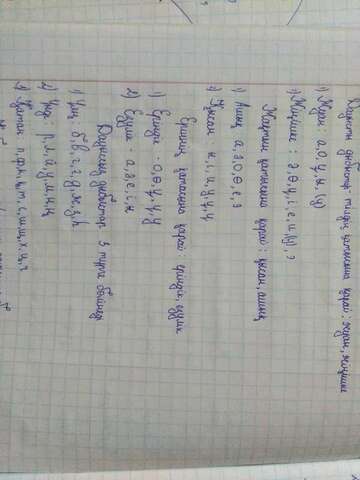 Дауысты дыбыстар тілдің қатысына қарай: жуан, жіңішке
1) Жуан: а, о, ұ, ы, (у)
2) Жіңішке: ә, ө, ү, і, е, и, (у), э
Жақтың қатысына қарай: қысаң, ашық
1) Ашық а, ә, о, ө, е, э
2) Қысаң: ы, і, и, ұ, ү, у
Еріннің қатысына қарай: еріндік, езулік
1) Еріндік - о, ө, ұ, ү, у
2) Езулік - а, ә, е, і, ы
Дауыссыз дыбыстар 3 түрге бөлінеді
1) Ұяң: б, в, г, ғ, д, ж, з, һ
2) Үнді: р, л, й, у, м, н, ң
3) Қатаң п, ф, к, қ, т, с, ш, щ, х, ц, ч